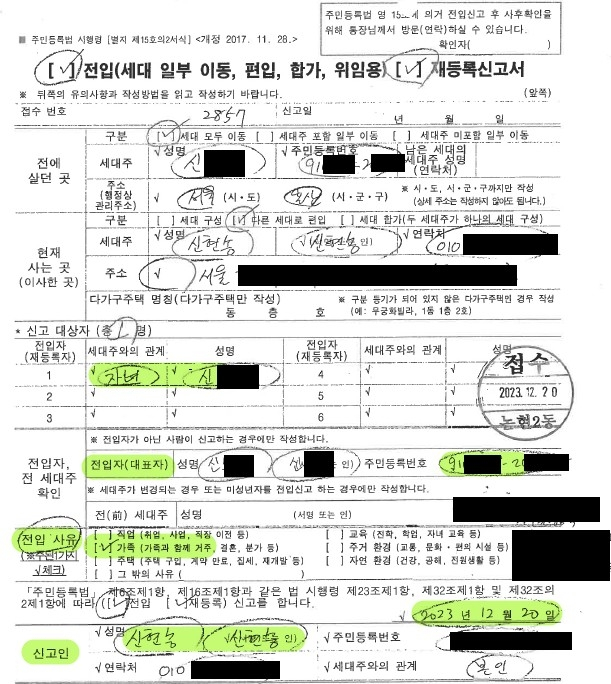 주민등록법 영 15 에 의거 전입신고 후 사후확인을
위해 통장님께서 방문(연락)하실 수 있습니다.
확인자( )
■ 주민등록법 시행령 [별지 제15호의2서식] <개정 2017. 11. 28.>
[√] 전입(세대 일부 이동, 편입, 합가, 위임용) [√] 재등록신고서
※ 뒤쪽의 유의사항과 작성방법을 읽고 작성하기 바랍니다. (앞쪽)
접수 번호 2857 신고일 년 월 일
전에 살던 곳
구분 [√] 세대 모두 이동 [ ] 세대주 포함 일부 이동 [ ] 세대주 미포함 일부 이동
세대주 √ 성명 신 √ 주민등록번호 91 - 2 남은 세대의 세대주 성명 (연락처)
주소 (행정상 관리주소) √ 서울 (시·도) (시·군·구) ※ 시·도, 시·군·구까지만 작성 (상세 주소는 작성하지 않아도 됩니다.)
현재 사는 곳 (이사한 곳)
구분 [ ] 세대 구성 [√] 다른 세대로 편입 [ ] 세대 합가(두 세대주가 하나의 세대 구성)
세대주 √ 성명 신현농 신현농 인) √ 연락처 010
주소 √ 서울
다가구주택 명칭(다가구주택만 작성) 동 층 호
※ 구분 등기가 되어 있지 않은 다가구주택인 경우 작성 (예: 무궁화빌라, 1동 1층 2호)
* 신고 대상자 (총 1 명)
전입자 (재등록자) 세대주와의 관계 성명 전입자 (재등록자) 세대주와의 관계 성명
1 √ 자녀 √ 신 4 √ √
2 √ √ 5 √ √
3 √ √ 6 √ √
접수
2023. 12. 20
논현2동
전입자, 전 세대주 확인
※ 전입자가 아닌 사람이 신고하는 경우에만 작성합니다.
전입자(대표자) 성명 신 신 는 인) 주민등록번호 91 - 2
※ 세대주가 변경되는 경우 또는 미성년자를 전입신고 하는 경우에만 작성합니다.
전(前) 세대주 성명 (서명 또는 인)
전입 사유
(※주된1가지 √체크)
[ ] 직업 (취업, 사업, 직장 이전 등) [ ] 교육 (진학, 학업, 자녀 교육 등)
[√] 가족 (가족과 함께 거주, 결혼, 분가 등) [ ] 주거 환경 (교통, 문화·편의 시설 등)
[ ] 주택 (주택 구입, 계약 만료, 집세, 재개발 등) [ ] 자연 환경 (건강, 공해, 전원생활 등)
[ ] 그 밖의 사유 ( )
「주민등록법」 제6조제1항, 제16조제1항과 같은 법 시행령 제23조제1항, 제32조제1항 및 제32조의
2제1항에 따라 ([√]전입 [√]재등록) 신고를 합니다.
√ 2023 년 12 월 20 일
신고인
√ 성명 신현농 신현농 인) √ 주민등록번호
√ 연락처 010 √ 세대주와의 관계 본인